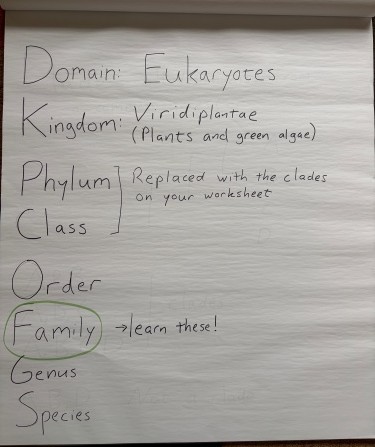 Domain: Eukaryotes
Kingdom: Viridiplantae
(Plants and green algae)
Phylum] Replaced with the clades
on your worksheet
Class
Order
Family →learn these!
Genus
Species